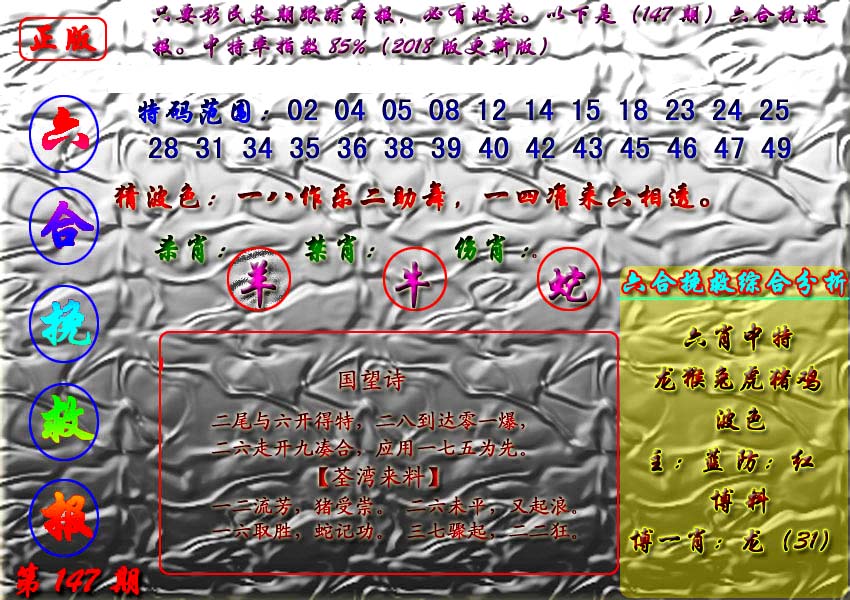 正版
只要彩民长期跟踪本报，必有收获。以下是（147 期）六合挽救
报。中特率指数 85%（2018 版更新版）
六
合
挽
救
报
第 147 期
特码范围：02 04 05 08 12 14 15 18 23 24 25
28 31 34 35 36 38 39 40 42 43 45 46 47 49
猜波色：一八作乐二助舞，一四准来六相透。
杀肖：羊 禁肖：牛 伤肖：蛇
国望诗
二尾与六开得特，二八到达零一爆，
二六走开九凑合，应用一七五为先。
【荃湾来料】
一二流芳，猪受崇。 二六未平，又起浪。
一六取胜，蛇记功。 三七骤起，二二狂。
六合挽救综合分析
六肖中特
龙猴兔虎猪鸡
波色
主：蓝防：红
博料
博一肖：龙（31）